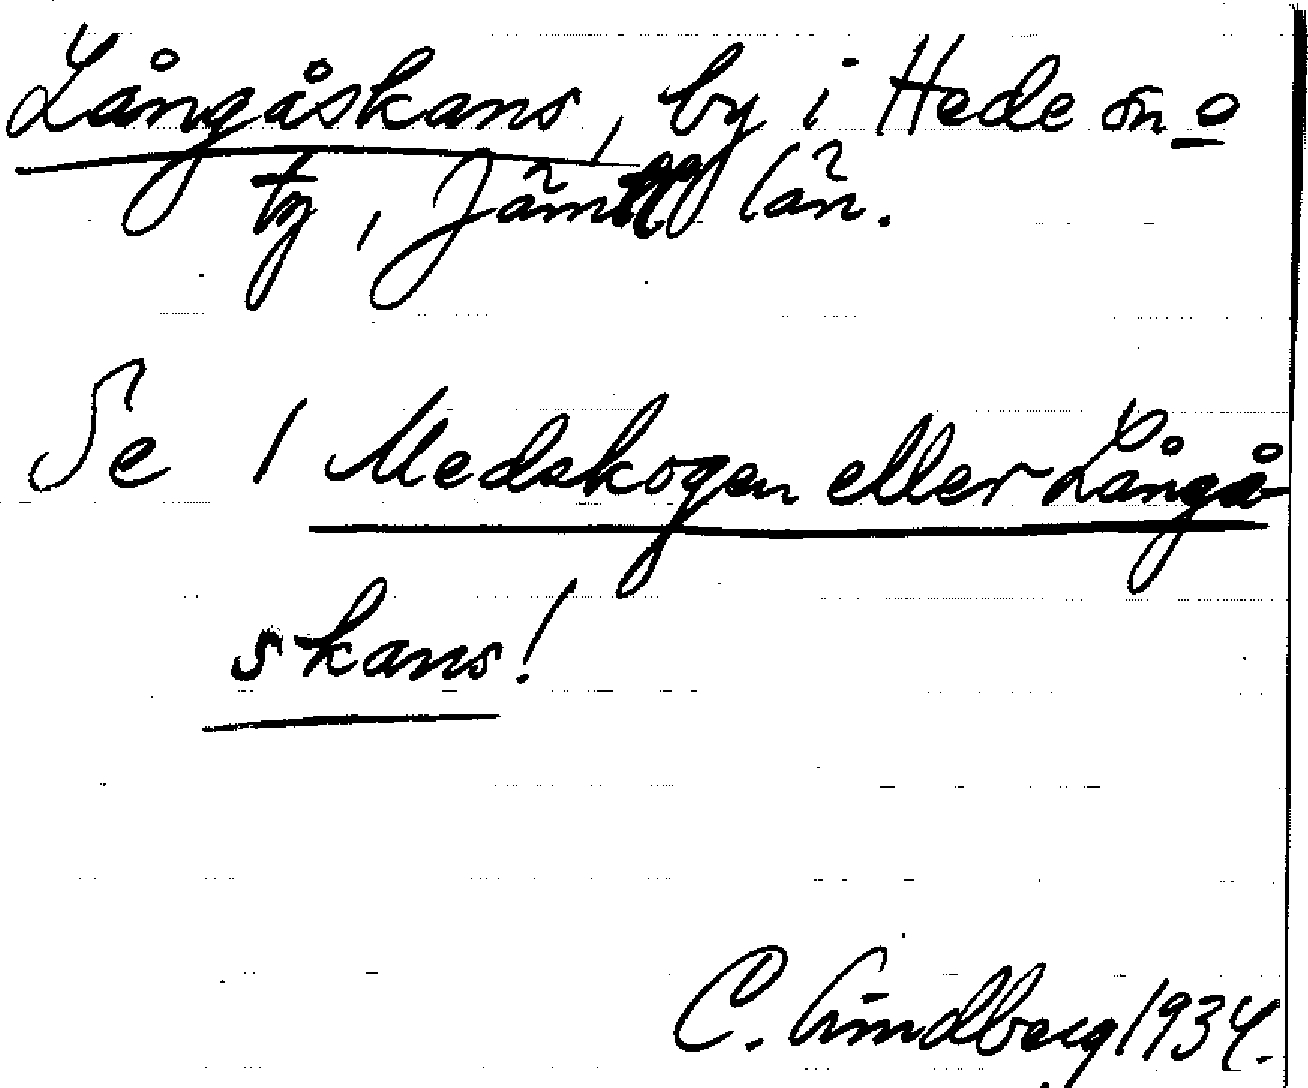 Långåskans, by i Hede sn o
tg, Jämtl län.
Se / Medskogen eller Långå-
skans!
C. Lindberg 1934.